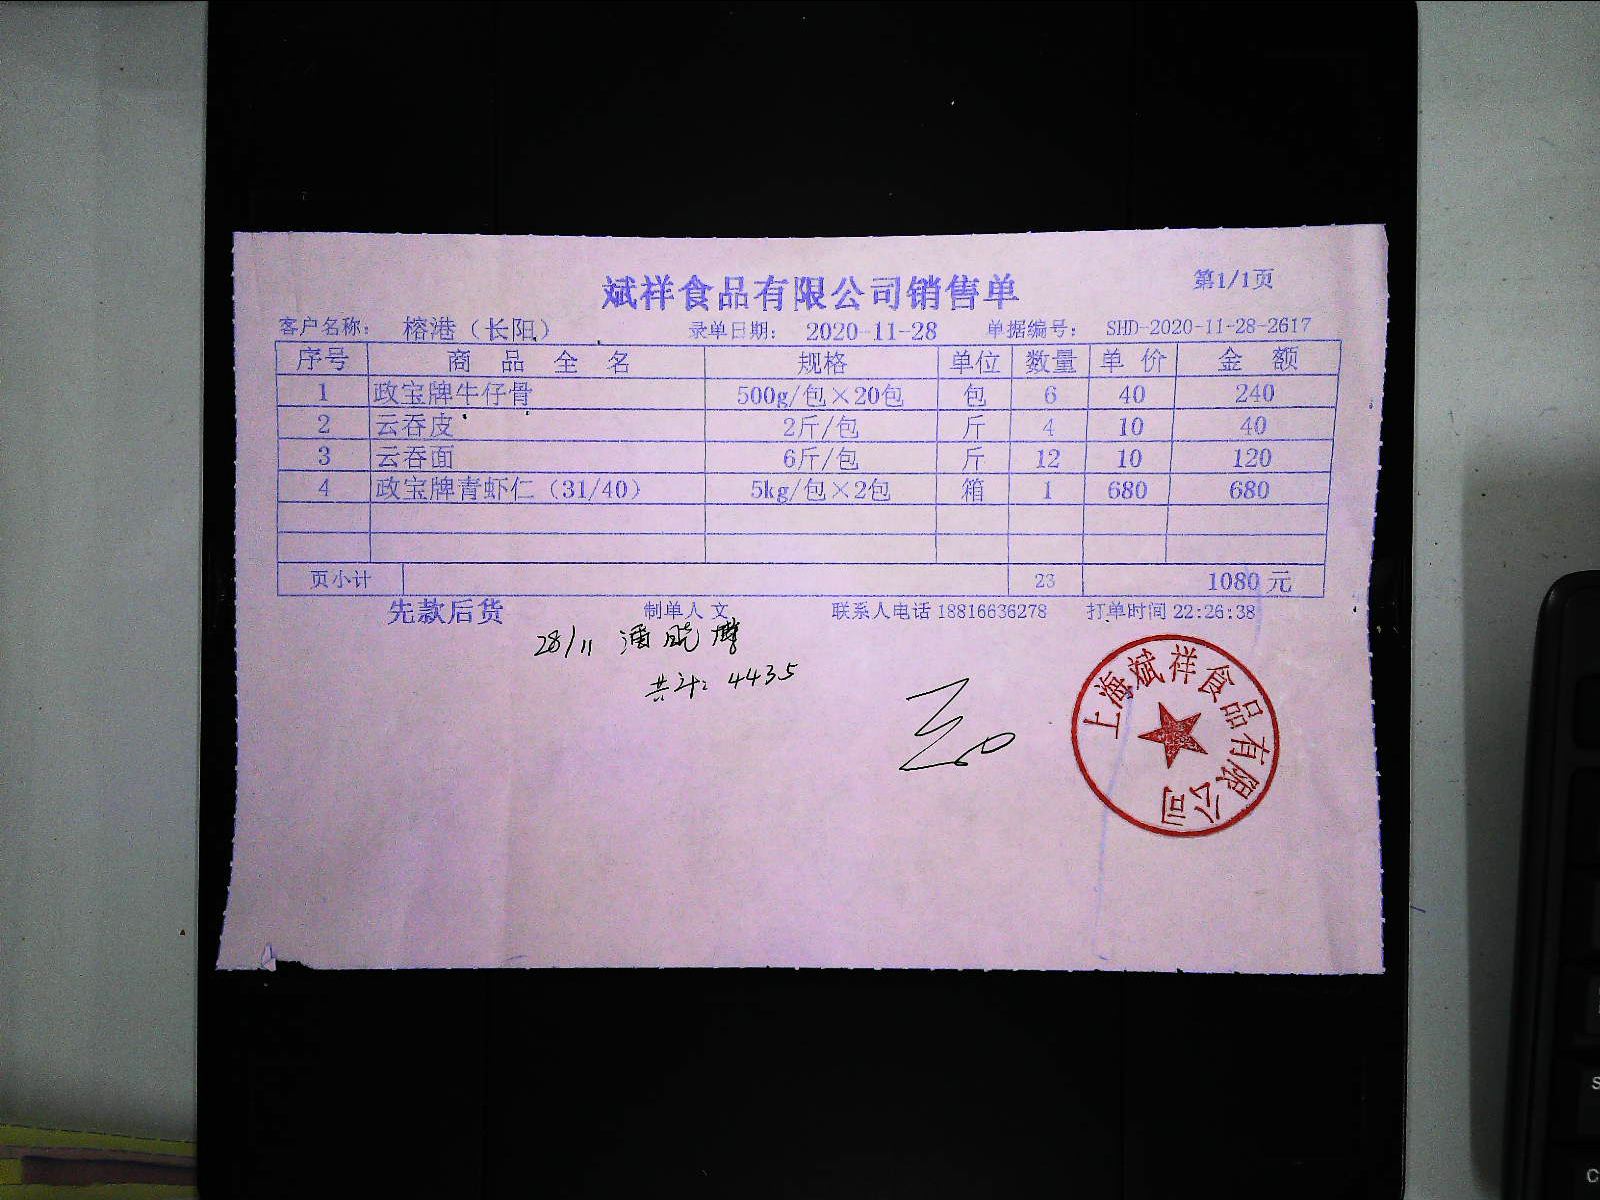 斌祥食品有限公司销售单
第1/1页
客户名称： 榕港（长阳） 录单日期： 2020-11-28 单据编号： SHD-2020-11-28-2617
序号 商品全名 规格 单位 数量 单价 金额
1 政宝牌牛仔骨 500g/包×20包 包 6 40 240
2 云吞皮 2斤/包 斤 4 10 40
3 云吞面 6斤/包 斤 12 10 120
4 政宝牌青虾仁（31/40） 5kg/包×2包 箱 1 680 680
页小计 23 1080元
先款后货 制单人 文 联系人电话 18816636278 打单时间 22:26:38
28/11 潘晓
共计: 4435
上海斌祥食品有限公司